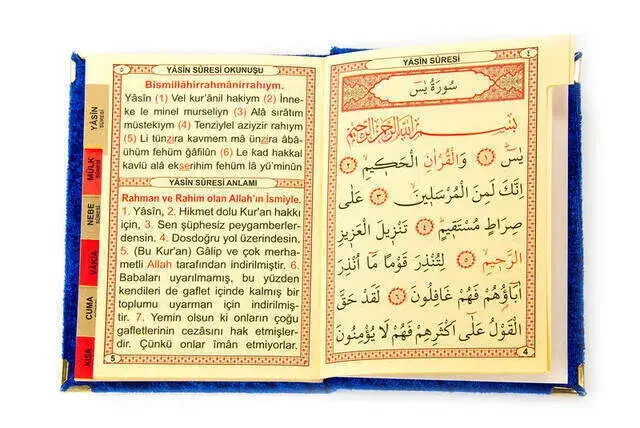 YÂSÎN SÛRESİ
٤
سُورَةُ يٰسٓ
بِسْمِ اللّٰهِ الرَّحْمٰنِ الرَّحِيمِ
يٰسٓ ﴿١﴾ وَالْقُرْاٰنِ الْحَكِيمِ ﴿٢﴾
اِنَّكَ لَمِنَ الْمُرْسَلِينَ ﴿٣﴾ عَلٰى
صِرَاطٍ مُسْتَقِيمٍ ﴿٤﴾ تَنْزِيلَ الْعَزِيزِ
الرَّحِيمِ ﴿٥﴾ لِتُنْذِرَ قَوْمًا مَٓا اُنْذِرَ
اٰبَٓاؤُ۬هُمْ فَهُمْ غَافِلُونَ ﴿٦﴾ لَقَدْ حَقَّ
الْقَوْلُ عَلٰٓى اَكْثَرِهِمْ فَهُمْ لَا يُؤْمِنُونَ
4
٥
YÂSÎN SÛRESİ OKUNUŞU
Bismillâhirrahmânirrahıym.
Yâsîn (1) Vel kur'ânil hakiym (2) İnne-
ke le minel murseliyn (3) Alâ sırâtım
müstekıym (4) Tenziylel aziyzir rahıym
(5) Li tünzira kavmem mâ ünzira âbâ-
ühüm fehüm ğâfilûn (6) Le kad hakkal
kavlü alâ ekserihim fehüm lâ yü'minûn
YÂSÎN SÛRESİ ANLAMI
Rahman ve Rahim olan Allah'ın İsmiyle.
1. Yâsîn, 2. Hikmet dolu Kur'an hakkı
için, 3. Sen şüphesiz peygamberler-
densin. 4. Dosdoğru yol üzerindesin.
5. (Bu Kur'an) Gâlip ve çok merha-
metli Allah tarafından indirilmiştir. 6.
Babaları uyarılmamış, bu yüzden
kendileri de gaflet içinde kalmış bir
toplumu uyarman için indirilmiş-
tir. 7. Yemin olsun ki onların çoğu
gafletlerinin cezasını hak etmişler-
dir. Çünkü onlar îmân etmiyorlar.
5
YÂSİN
SÛRESİ
MÜLK
SÛRESİ
NEBE
SÛRESİ
VAKIA
CUMA
KISA